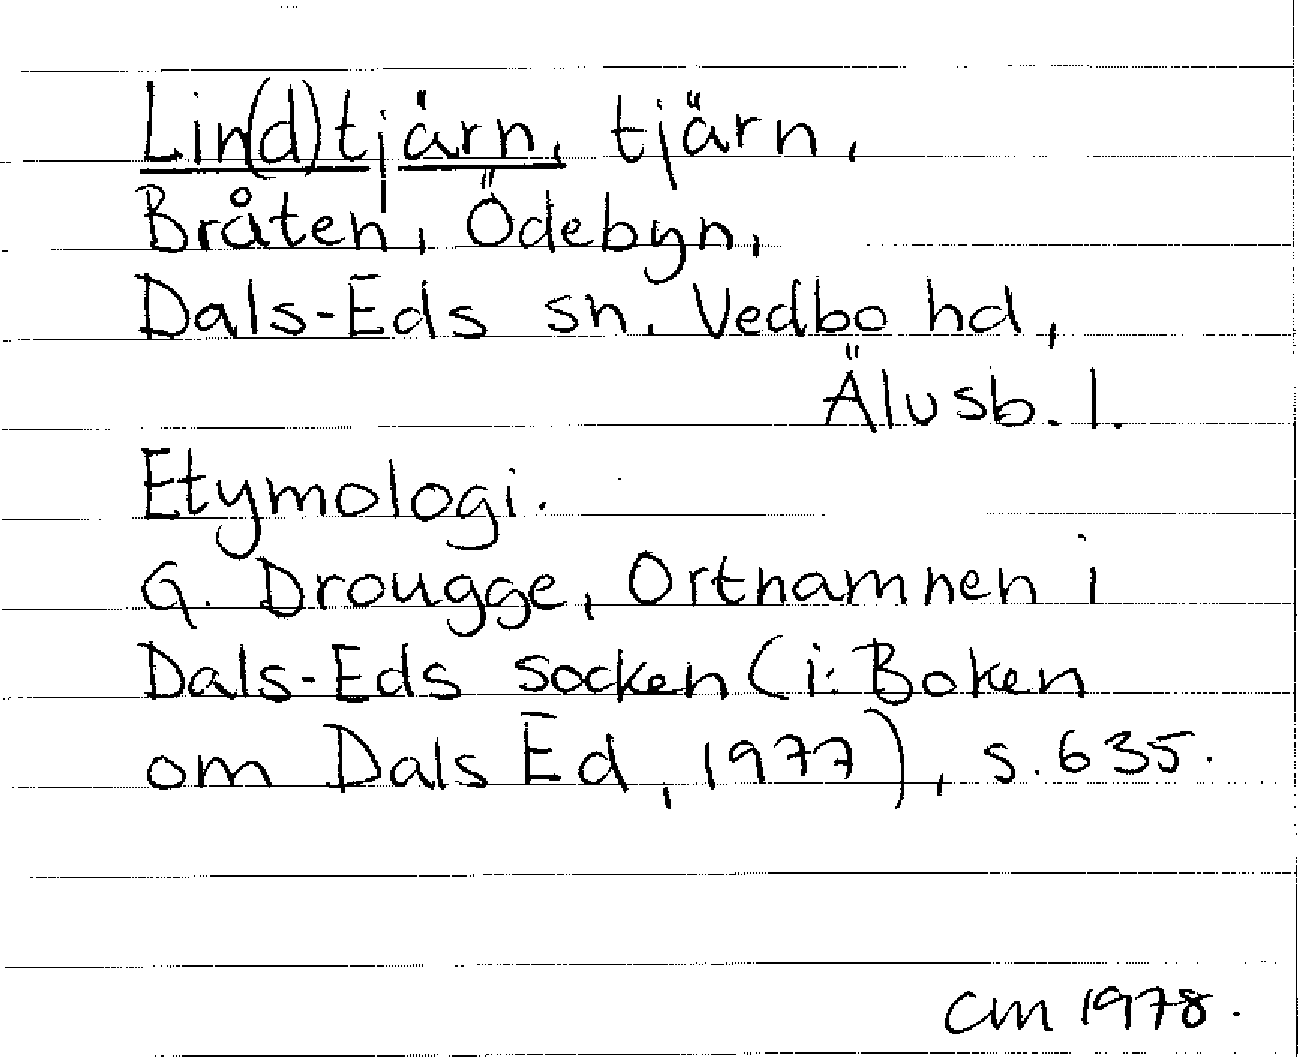 Lin(d)tjärn, tjärn,
Bråten, Ödebyn,
Dals-Eds sn, Vedbo hd,
Älvsb. l.
Etymologi.
G. Drougge, Ortnamnen i
Dals-Eds socken (i: Boken
om Dals Ed, 1977), s. 635.
CM 1978.